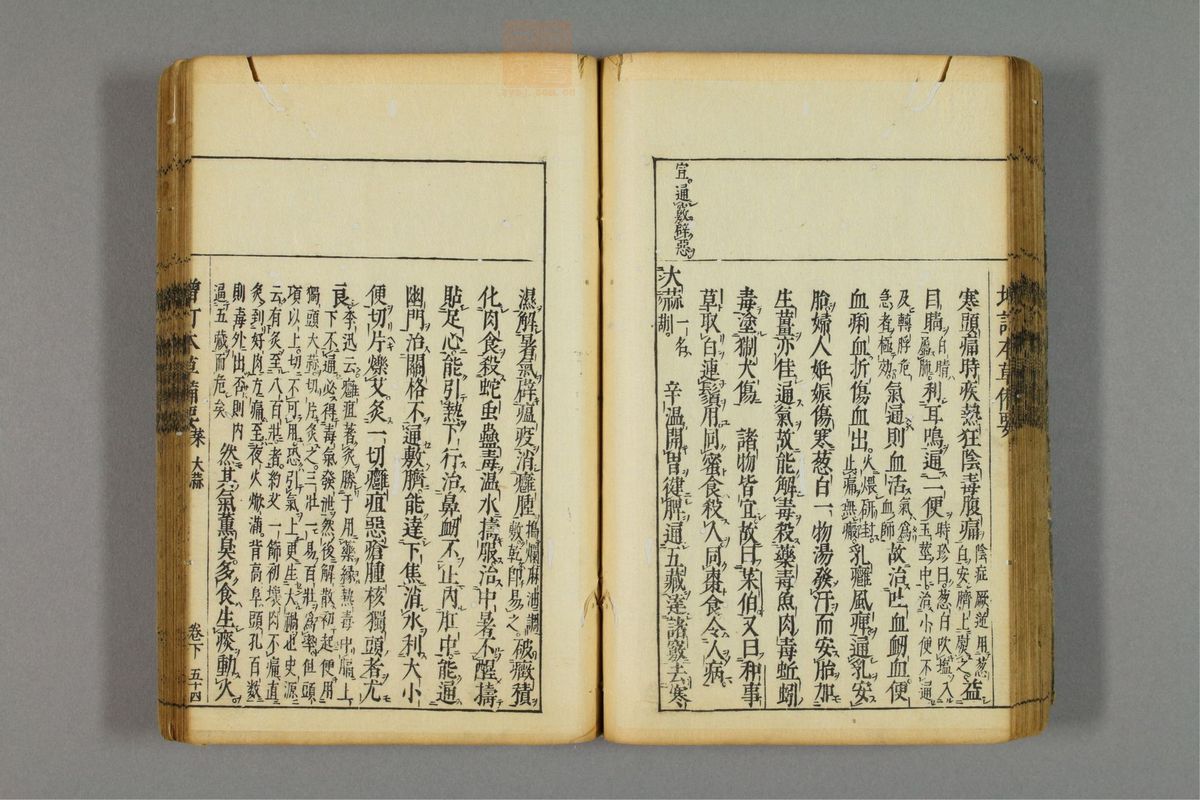 宜。通竅辟惡
寒頭痛時疾熱狂陰毒腹痛陰症厥逆用葱白安臍上熨之益
目睛白睛屬肺利耳鳴通二便時珍曰葱白吹鹽入玉莖中治小便不通
及轉脬危急者極效氣通則血活氣爲血師故治吐血衂血便
血痢血折傷血出火煨研封止痛無瘢乳癰風痺通乳安
胎婦人姙娠傷寒葱白一物湯發汗而安胎加
生薑亦佳通氣故能解毒殺藥毒魚肉毒蚯蚓
毒塗猘犬傷 諸物皆宜故曰菜伯又曰和事
草取白連鬚用同蜜食殺人同棗食令人病
大蒜一名葫。 辛温開胃健脾通五藏達諸竅去寒
濕解暑氣辟瘟疫消癰腫搗爛麻油調敷乾即易之破癥積
化肉食殺蛇虫蠱毒温水擣服治中暑不醒擣
貼足心能引熱下行治鼻衂不止內肛中能通
幽門治關格不通敷臍能達下焦消水利大小
便切片爍艾灸一切癰疽惡瘡腫核獨頭者尤
良李迅云癰疽著灸勝于用藥緣熱毒中膈上
下不通必得毒氣發泄然後解散初起便用
獨頭大蒜切片灸之三壯一易百壯爲率但頭
項以上切不可用恐引氣上更生大禍也史源
云有灸至八百壯者約艾一篩初壞肉不痛直
灸到好肉方痛至夜火焮滿背高阜頭孔百數
則毒外出否則內逼五藏而危矣然其氣薰臭多食生痰動火
增訂本草備要 菜 大蒜 卷下 五十四